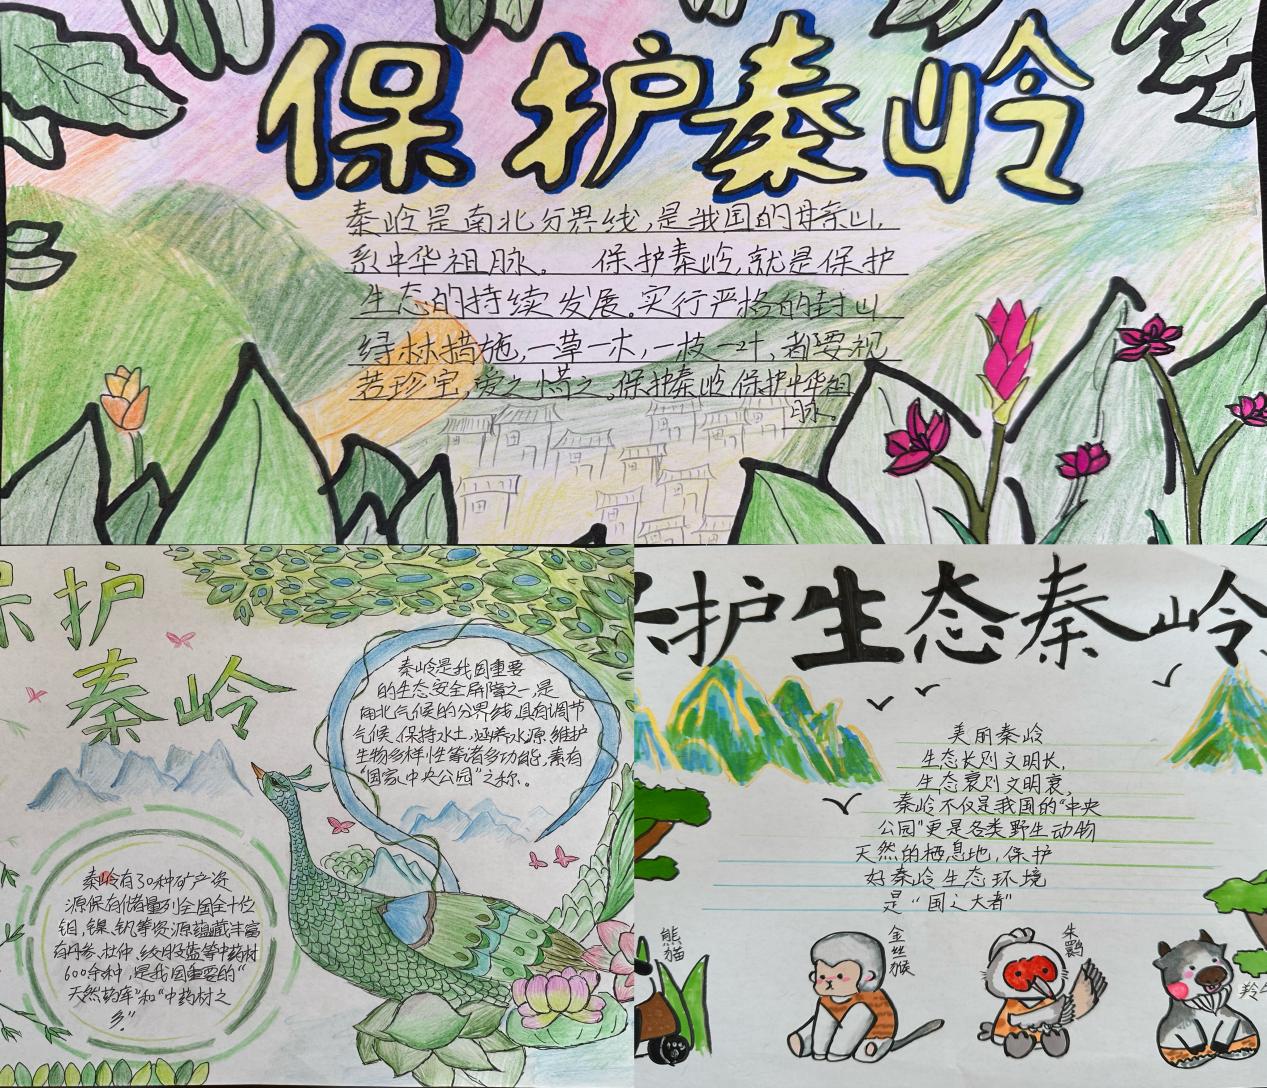 保护秦岭
秦岭是南北分界线,是我国的母亲山,
系中华祖脉。 保护秦岭,就是保护
生态的持续发展。实行严格的封山
绿林措施,一草一木,一枝一叶,都要视
若珍宝,爱之惜之。保护秦岭保护中华祖
脉。
保护
秦岭
秦岭是我国重要
的生态安全屏障之一,是
南北气候的分界线,具有调节
气候、保持水土,涵养水源、维护
生物多样性等诸多功能,素有
“国家中央公园”之称。
秦岭有30种矿产资
源保有储量列全国全十位
钼,镍,钒等资源蕴藏丰富
有丹参、杜仲、绞股蓝等中药材
600余种,是我国重要的“
天然药库”和“中药材之
乡”。
保护生态秦岭
美丽秦岭
生态长则文明长,
生态衰则文明衰,
秦岭不仅是我国的“中央
公园”更是各类野生动物
天然的栖息地,保护
好秦岭生态环境
是“国之大者”
熊猫
金丝猴
朱鹮
羚牛